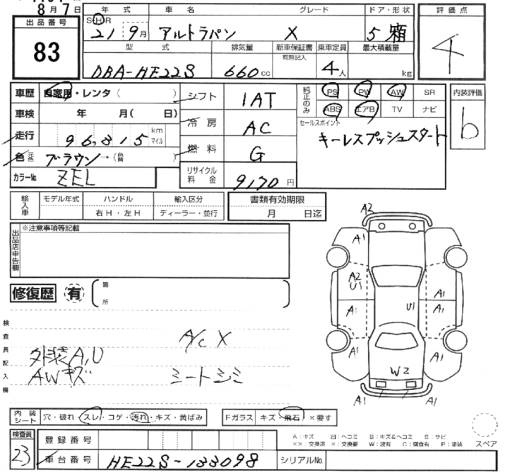 8月7日
年式 車名 グレード ドア・形状 評価点
出品番号 S・H・R
21 9月 アルトラパン X 5 箱 4
83
型式 排気量 新車保証書 乗車定員 最大積載量
有無記入
DBA-HE22S 660cc 4人 kg
車歴 自家用・レンタ( )
シフト 1AT
装備品のみ PS PW AW SR
ABS エアB TV ナビ
内装評価 b
車検 年 月( 日)
冷房 AC
セールスポイント
キーレスプッシュスタート
走行 96,815 km マイル
燃料 G
色 ブラウン・(替 )
カラーNo. ZEL
リサイクル料金 9170円
輸入車 モデル年式 ハンドル 輸入区分 書類有効期限
右H・左H ディーラー・並行 月 日迄
出品店申告欄 ※注意事項等記載
A2
A1 A1
A2 U1 A1
A1 U1 A1
A1 A1
W2
修復歴 有 箇所
検査員記入欄
A/C X
外装A,U
AWキズ シートシミ
内装シート 穴・破れ・スレ・コゲ・汚れ・キズ・黄ばみ
Fガラス キズ・飛石・X要す
スペア
検査員 23
登録番号
車台番号 HE22S-133098 シリアルNo.